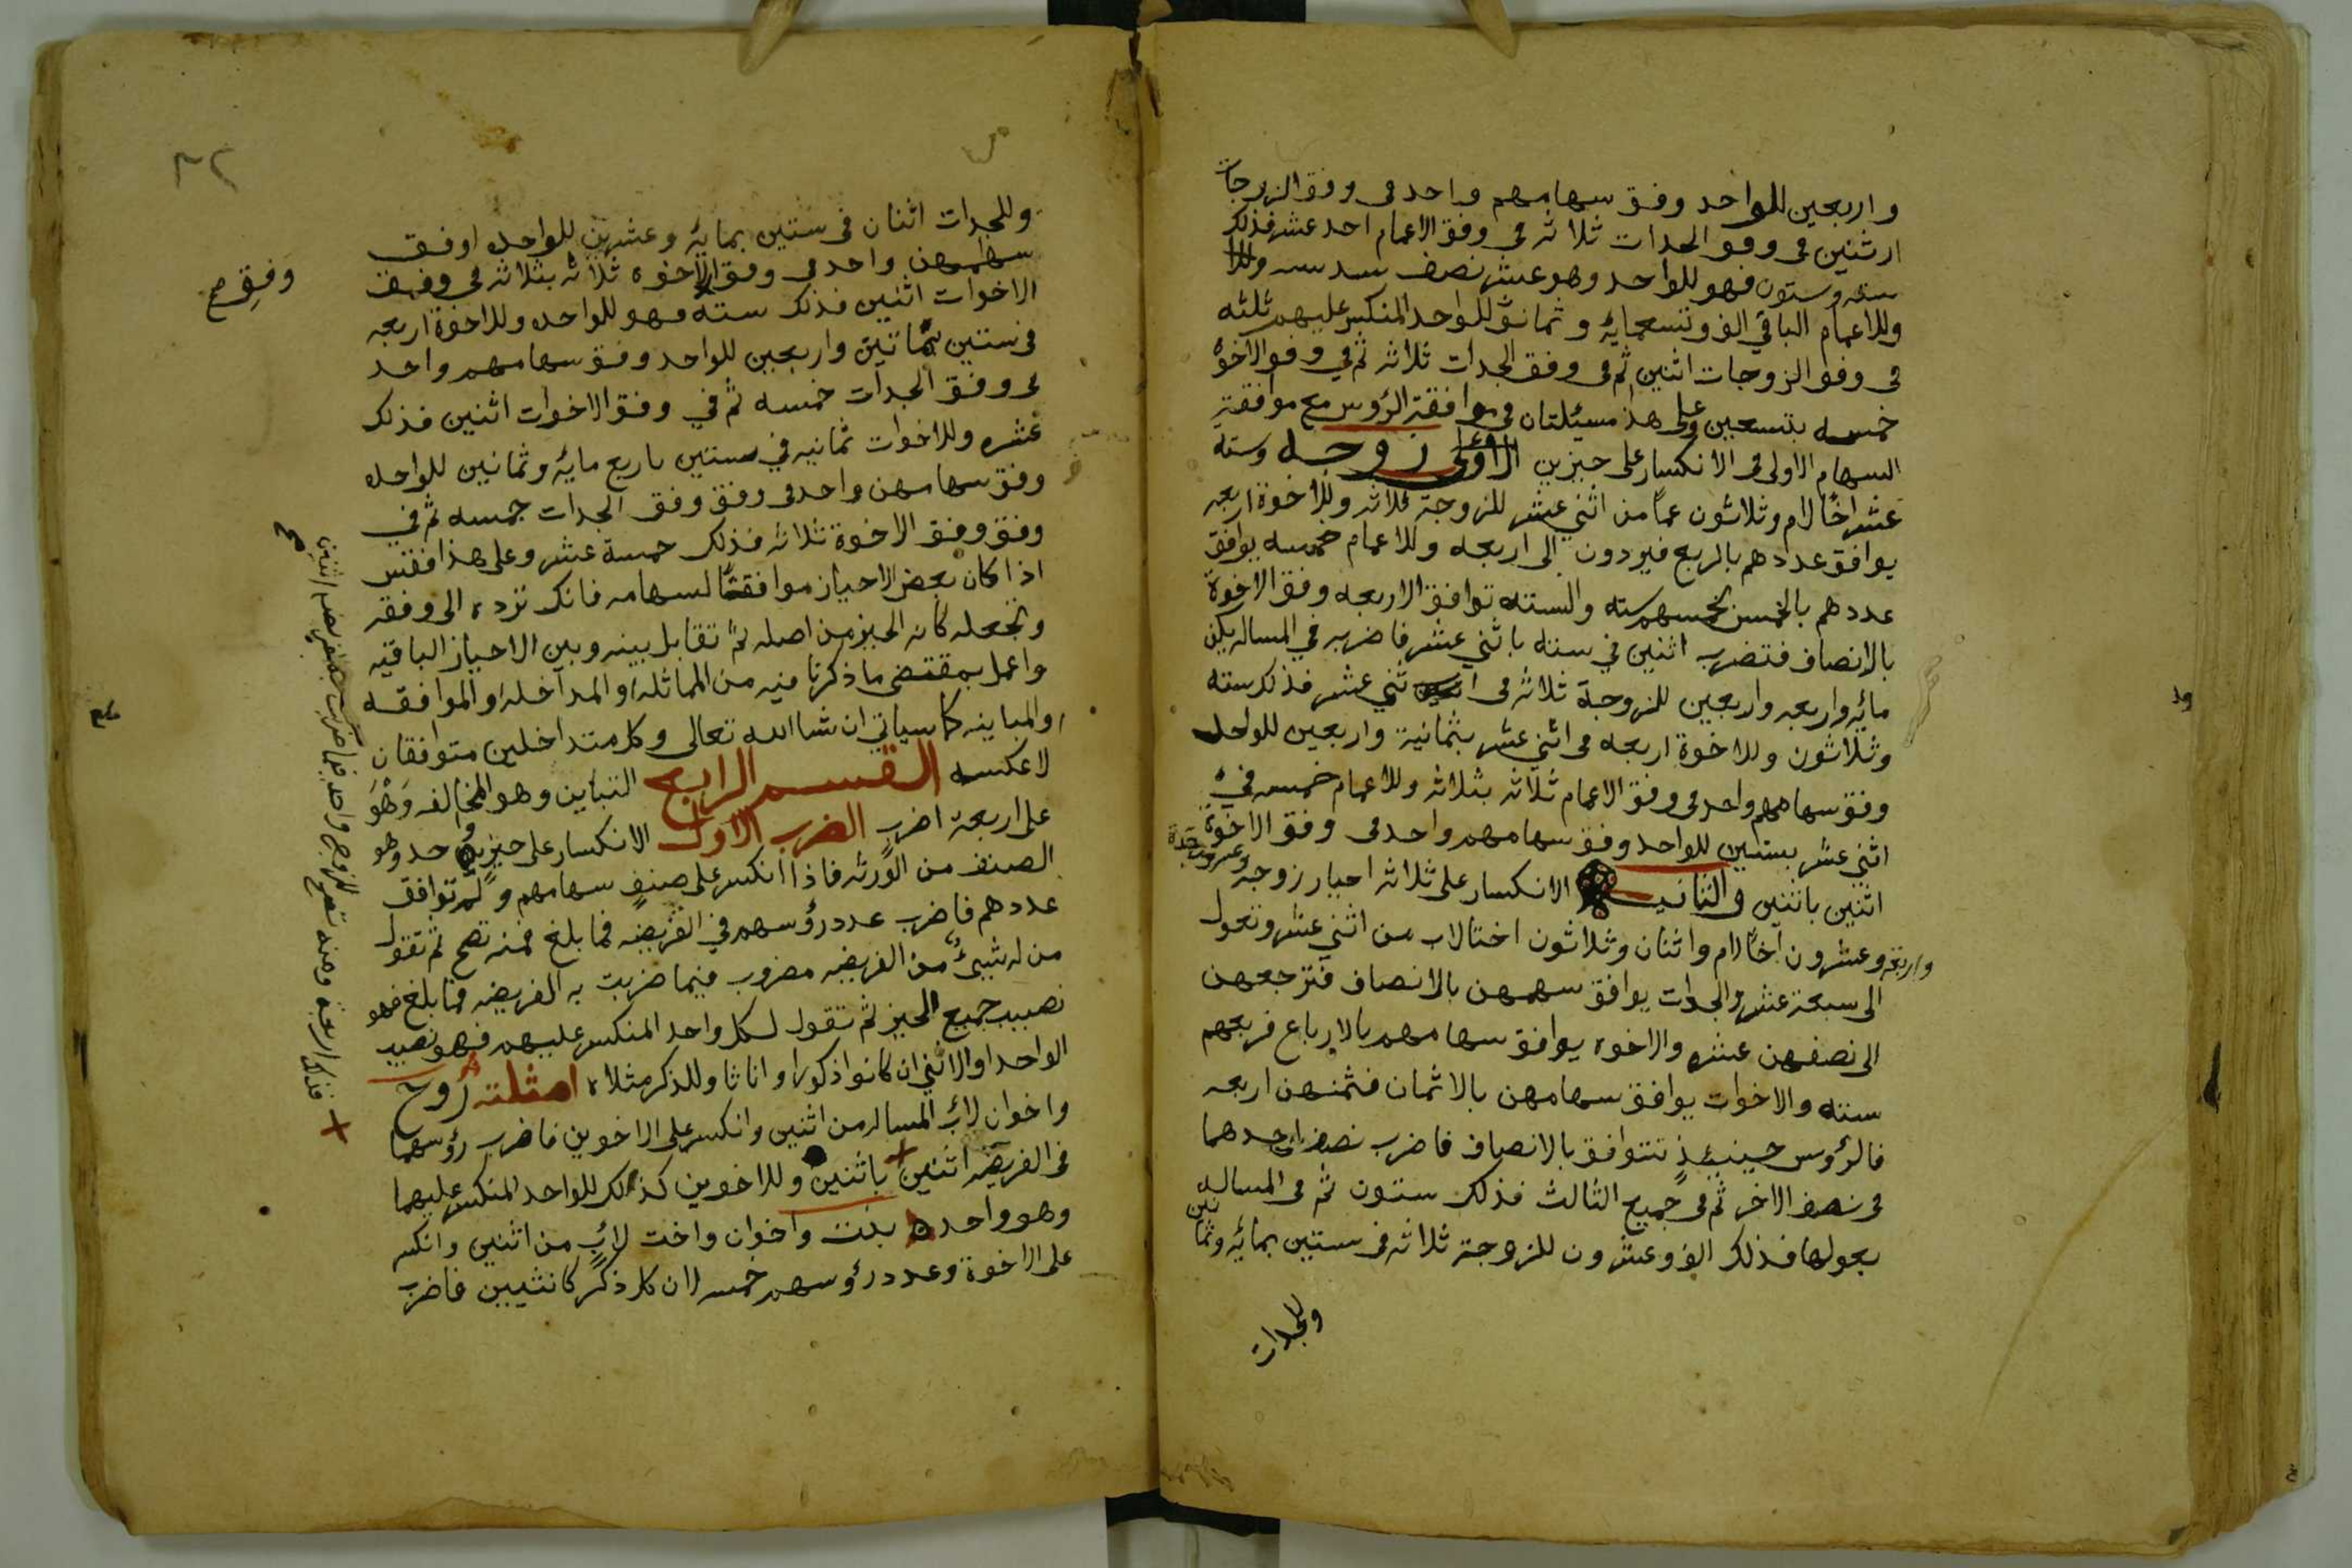 واربعين للواحد وفق سهامهم واحد فى وفق الزوجات
اثنين فى وفق الجدات ثلاثه فى وفق الاعمام احد عشر فذلك
سته وستون فهو للواحد وهو عشر نصف سدسه
وللاعمام الباقي الف وتسعمايه وثمانون للواحد المنكسر عليهم ثلثه
فى وفق الزوجات اثنين ثم فى وفق الجدات ثلاثه ثم في وفق الاخوه
خمسه بتسعين وعلى هذا مسيئلتان فى موافقة الرؤس مع موافقة
السهام الاولى فى الانكسار على حيزين الاولى زوجه وسته
عشر اخًا لام وثلاثون عمًا من اثني عشر للزوجة ثلاثه وللاخوة اربعه
يوافق عددهم بالربع فيردون الى اربعه وللاعمام خمسه يوافق
عددهم بالخمس فخمسهم سته والسته توافق الاربعه وفق الاخوة
بالانصاف فتضرب اثنين في سته باثني عشر فاضربه في المساله يكن
مائه واربعه واربعين للزوجة ثلاثه فى اثني عشر فذلك سته
وثلاثون وللاخوة اربعه فى اثني عشر بثمانية واربعين للواحد
وفق سهامهم واحد فى وفق الاعمام ثلاثه بثلاثه وللاعمام خمسه في
اثني عشر بستين للواحد وفق سهامهم واحد فى وفق الاخوة
اثنين باثنين والثانيه الانكسار على ثلاثه احياز زوجه وعشرون جدة
واربعة وعشرون اخًا لام واثنان وثلاثون اختا لاب من اثني عشر وتعول
الى سبعة عشر والجدات يوافق سهمهن بالانصاف فترجعهن
الى نصفهن عشره والاخوه يوافق سهامهم بالارباع فربعهم
سته والاخوات يوافق سهامهن بالاثمان فثمنهن اربعه
فالرؤوس حينيئذٍ تتوافق بالانصاف فاضرب نصف احدهما
فى نصف الاخر ثم فى جميع الثالث فذلك ستون ثم فى المساله
بعولها فذلك الف وعشرون للزوجة ثلاثه فى ستين بمائه وثمانين
وللجدات
٣٢
وللجدات اثنان فى ستين بمايه وعشرين للواحده اوفق
سهامهن واحد فى وفق الاخوه ثلاثه بثلاثه فى وفق
وفق صح
الاخوات اثنين فذلك سته فهو للواحده وللاخوة اربعه
فى ستين بمائتين واربعين للواحد وفق سهامهم واحد
فى وفق الجدات خمسه ثم في وفق الاخوات اثنين فذلك
عشره وللاخوات ثمانيه في ستين باربع مايه وثمانين للواحده
وفق سهامهن واحد فى وفق وفق الجدات خمسه ثم في
وفق وفق الاخوة ثلاثه فذلك خمسة عشر وعلى هذا فقس
اذا كان بعض الاحياز موافقًا لسهامه فانك ترده الى وفقه
وتجعله كانه الحيز من اصله ثم تقابل بينه وبين الاحياز الباقيه
واعمل بمقتضى ما ذكرنا فيه من المماثله او المداخله او الموافقه
او المباينه كما سياتي ان شاالله تعالى وكل متداخلين متوافقان
لا عكسه القسم الرابع التباين وهو المخالفه وهو
على اربعة اضرب الضرب الاول الانكسار على حيز واحد وهو
الصنف من الورثه فاذا انكسر على صنفٍ سهامهم ولم توافق
عددهم فاضرب عدد رؤسهم في الفريضه فما بلغ فمنه تصح ثم تقول
من له شيئ من الفريضه مضروب فيما ضربت به الفريضه فما بلغ فهو
نصيب جميع الحيز ثم تقول لكل واحد المنكسر عليهم فهو نصيب
الواحد او الانثي ان كانوا ذكورا او اناثا وللذكر مثلاه امثلته زوج
واخوان لاب المساله من اثنين وانكسر على الاخوين فاضرب رؤسهما
فى الفريضه اثنين باثنين وللاخوين كذلك للواحد المنكسر عليهما
وهو واحد بنت واخوان واخت لاب من اثنين وانكسر
على الاخوة وعدد رؤوسهم خمسه لان كل ذكر كانثيين فاضرب
فذلك اربعة ومنه تصح للزوج واحد فيما ضربت